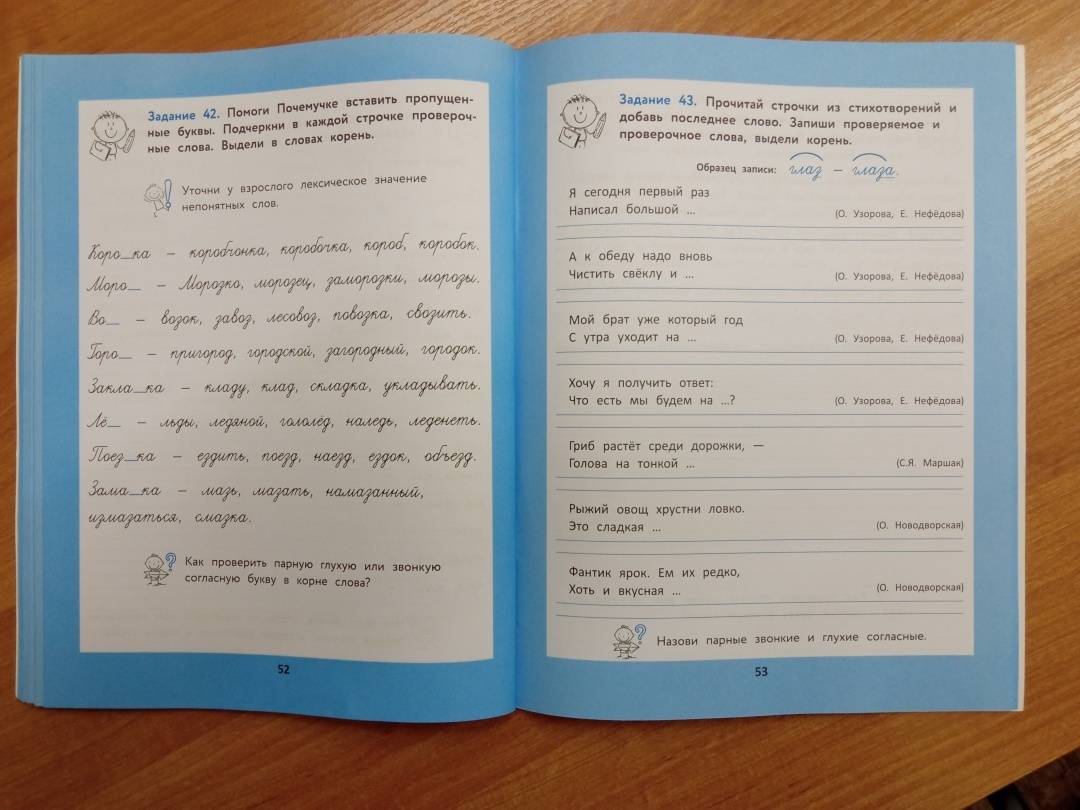 Задание 42. Помоги Почемучке вставить пропущен-
ные буквы. Подчеркни в каждой строчке провероч-
ные слова. Выдели в словах корень.
Уточни у взрослого лексическое значение
непонятных слов.
Коро_ка – коробчонка, коробочка, короб, коробок.
Моро_ – Морозко, морозец, заморозки, морозы.
Во_ – возок, завоз, лесовоз, повозка, свозить.
Горо_ – пригород, городской, загородный, городок.
Закла_ка – кладу, клад, складка, укладывать.
Лё_ – льды, ледяной, гололёд, наледь, леденеть.
Поез_ка – ездить, поезд, наезд, ездок, объезд.
Зама_ка – мазь, мазать, намазанный,
измазаться, смазка.
?
Как проверить парную глухую или звонкую
согласную букву в корне слова?
52
Задание 43. Прочитай строчки из стихотворений и
добавь последнее слово. Запиши проверяемое и
проверочное слова, выдели корень.
Образец записи: глаз – глаза.
Я сегодня первый раз
Написал большой ... (О. Узорова, Е. Нефёдова)
А к обеду надо вновь
Чистить свёклу и ... (О. Узорова, Е. Нефёдова)
Мой брат уже который год
С утра уходит на ... (О. Узорова, Е. Нефёдова)
Хочу я получить ответ:
Что есть мы будем на ...? (О. Узорова, Е. Нефёдова)
Гриб растёт среди дорожки, —
Голова на тонкой ... (С.Я. Маршак)
Рыжий овощ хрустни ловко.
Это сладкая ... (О. Новодворская)
Фантик ярок. Ем их редко,
Хоть и вкусная ... (О. Новодворская)
?
Назови парные звонкие и глухие согласные.
53